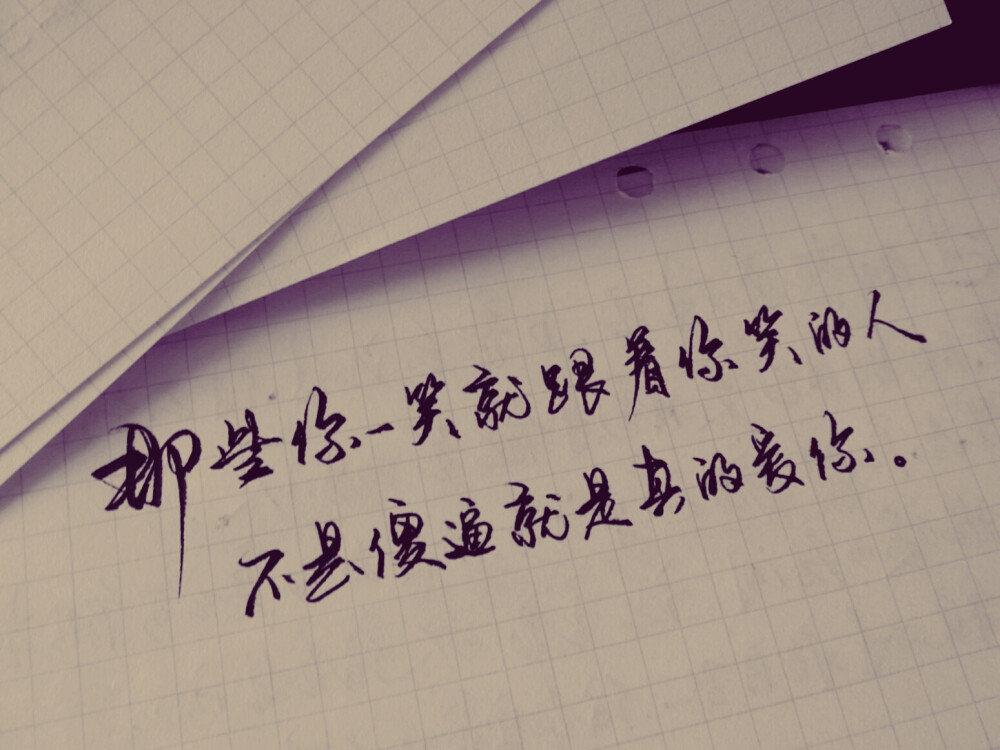 那些你一笑就跟着你笑的人
不是傻逼就是真的爱你。